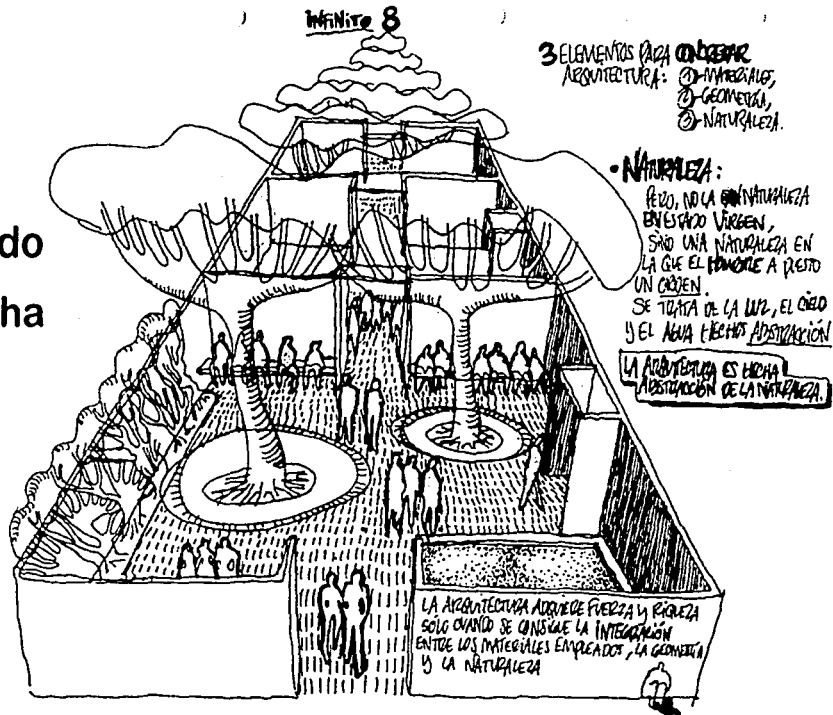 INFINITO 8
3 ELEMENTOS PARA
ARQUITECTURA: ①-MATERIALES,
②-GEOMETRÍA,
③-NATURALEZA.
• NATURALEZA:
PERO, NO LA NATURALEZA
EN ESTADO VIRGEN,
SINO UNA NATURALEZA EN
LA QUE EL HOMBRE A PUESTO
UN ORDEN.
SE TRATA DE LA LUZ, EL CIELO
Y EL AGUA HECHOS ABSTRACCIÓN
LA ARQUITECTURA ES HECHA
ABSTRACCIÓN DE LA NATURALEZA.
do
ha
LA ARQUITECTURA ADQUIERE FUERZA Y RIQUEZA
SOLO CUANDO SE CONSIGUE LA INTEGRACIÓN
ENTRE LOS MATERIALES EMPLEADOS, LA GEOMETRÍA
Y LA NATURALEZA